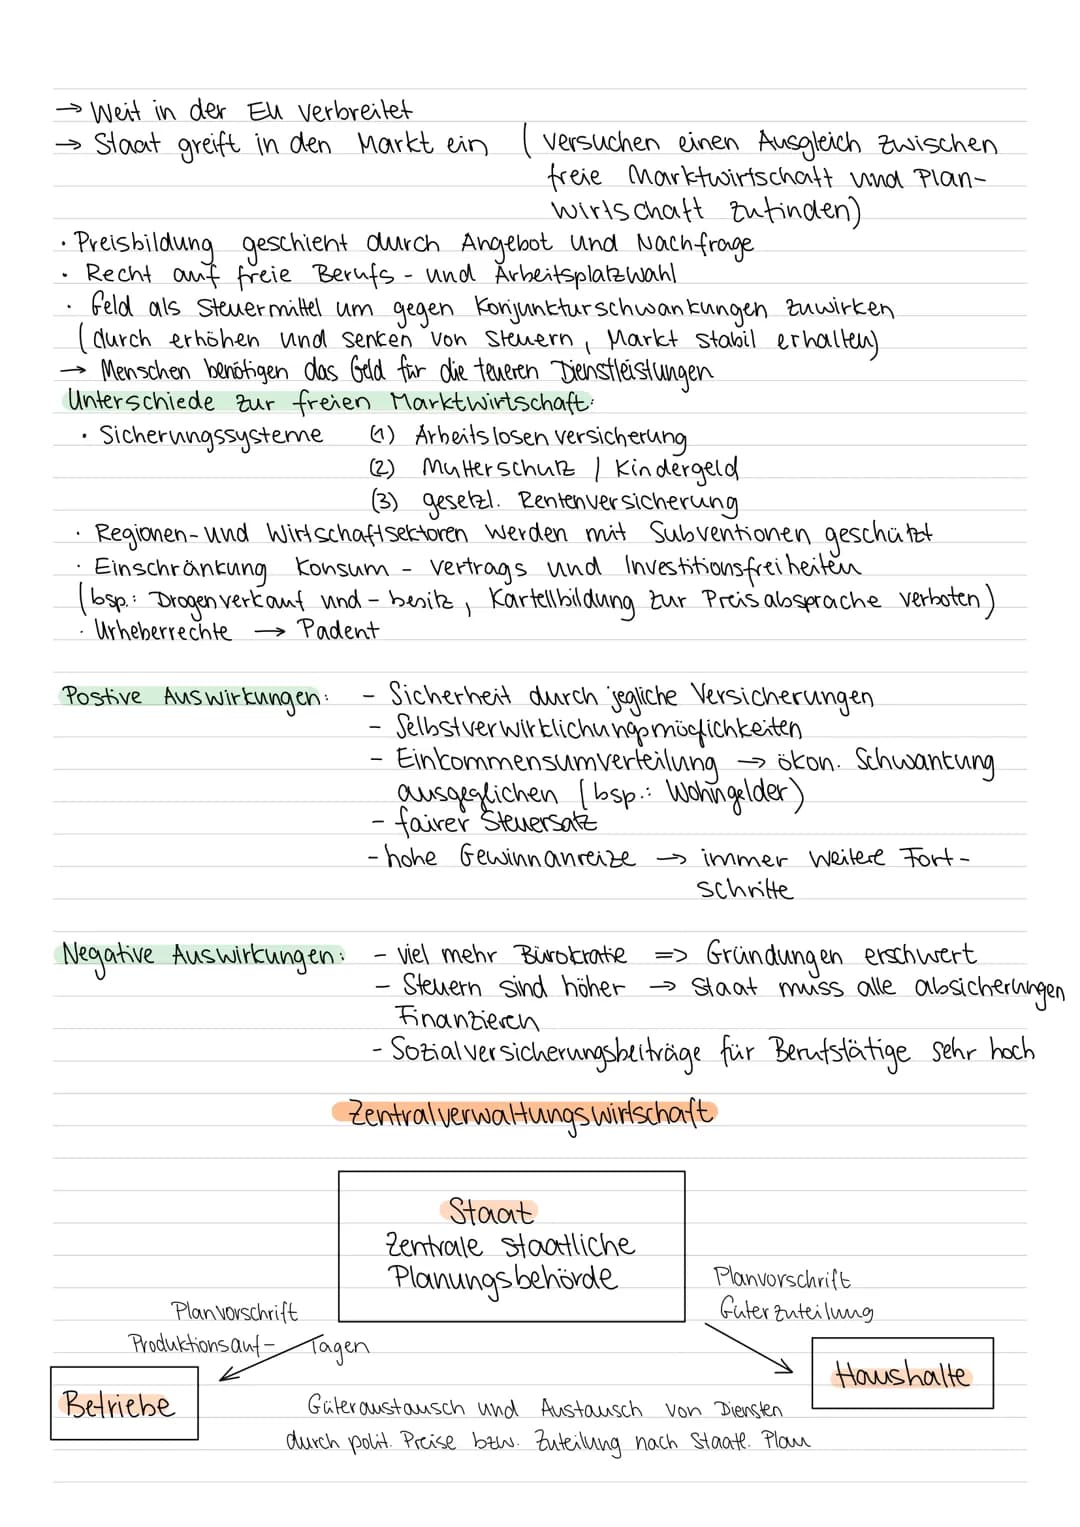 → Weit in der EU verbreitet
→ Staat greift in den Markt ein (versuchen einen Ausgleich zwischen
freie Marktwirtschaft und Plan-
wirtschaft zufinden)
· Preisbildung geschieht durch Angebot und Nachfrage
· Recht auf freie Berufs - und Arbeitsplatzwahl
· Geld als Steuermittel um gegen Konjunkturschwankungen zuwirken
(durch erhöhen und senken von Steuern, Markt stabil erhalten)
→ Menschen benötigen das Geld für die teueren Dienstleistungen
Unterschiede zur freien Marktwirtschaft:
· Sicherungssysteme (1) Arbeitslosenversicherung
(2) Mutterschutz / Kindergeld
(3) gesetzl. Rentenversicherung
· Regionen- und Wirtschaftsektoren werden mit Subventionen geschützt
· Einschränkung Konsum - Vertrags und Investitionsfreiheiten
(bsp.: Drogenverkauf und - besitz, Kartellbildung zur Preisabsprache verboten)
· Urheberrechte → Padent
Postive Auswirkungen: - Sicherheit durch jegliche Versicherungen
- Selbstverwirklichungsmöglichkeiten
- Einkommensumverteilung → ökon. Schwankung
ausgeglichen (bsp.: Wohngelder)
- fairer Steuersatz
- hohe Gewinnanreize → immer weitere Fort-
schritte
Negative Auswirkungen: - viel mehr Bürokratie => Gründungen erschwert
- Steuern sind höher → Staat muss alle absicherungen
Finanzieren
- Sozialversicherungsbeiträge für Berufstätige sehr hoch
Zentralverwaltungswirtschaft
Staat
Zentrale staatliche
Planungsbehörde
Planvorschrift
Güterzuteilung
Planvorschrift
Produktionsauf- Tagen
Haushalte
Betriebe
Güteraustausch und Austausch von Diensten
durch polit. Preise bzw. Zuteilung nach Staatl. Plan